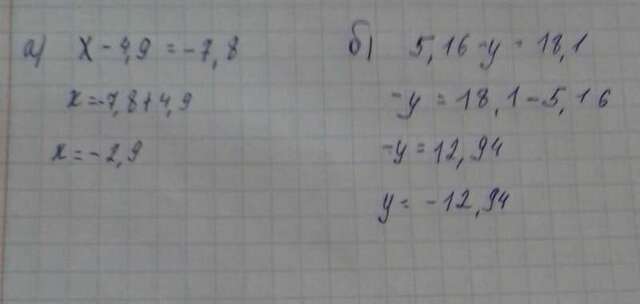 а) x - 4,9 = -7,8
x = -7,8 + 4,9
x = -2,9
б) 5,16 - y = 18,1
-y = 18,1 - 5,16
-y = 12,94
y = -12,94